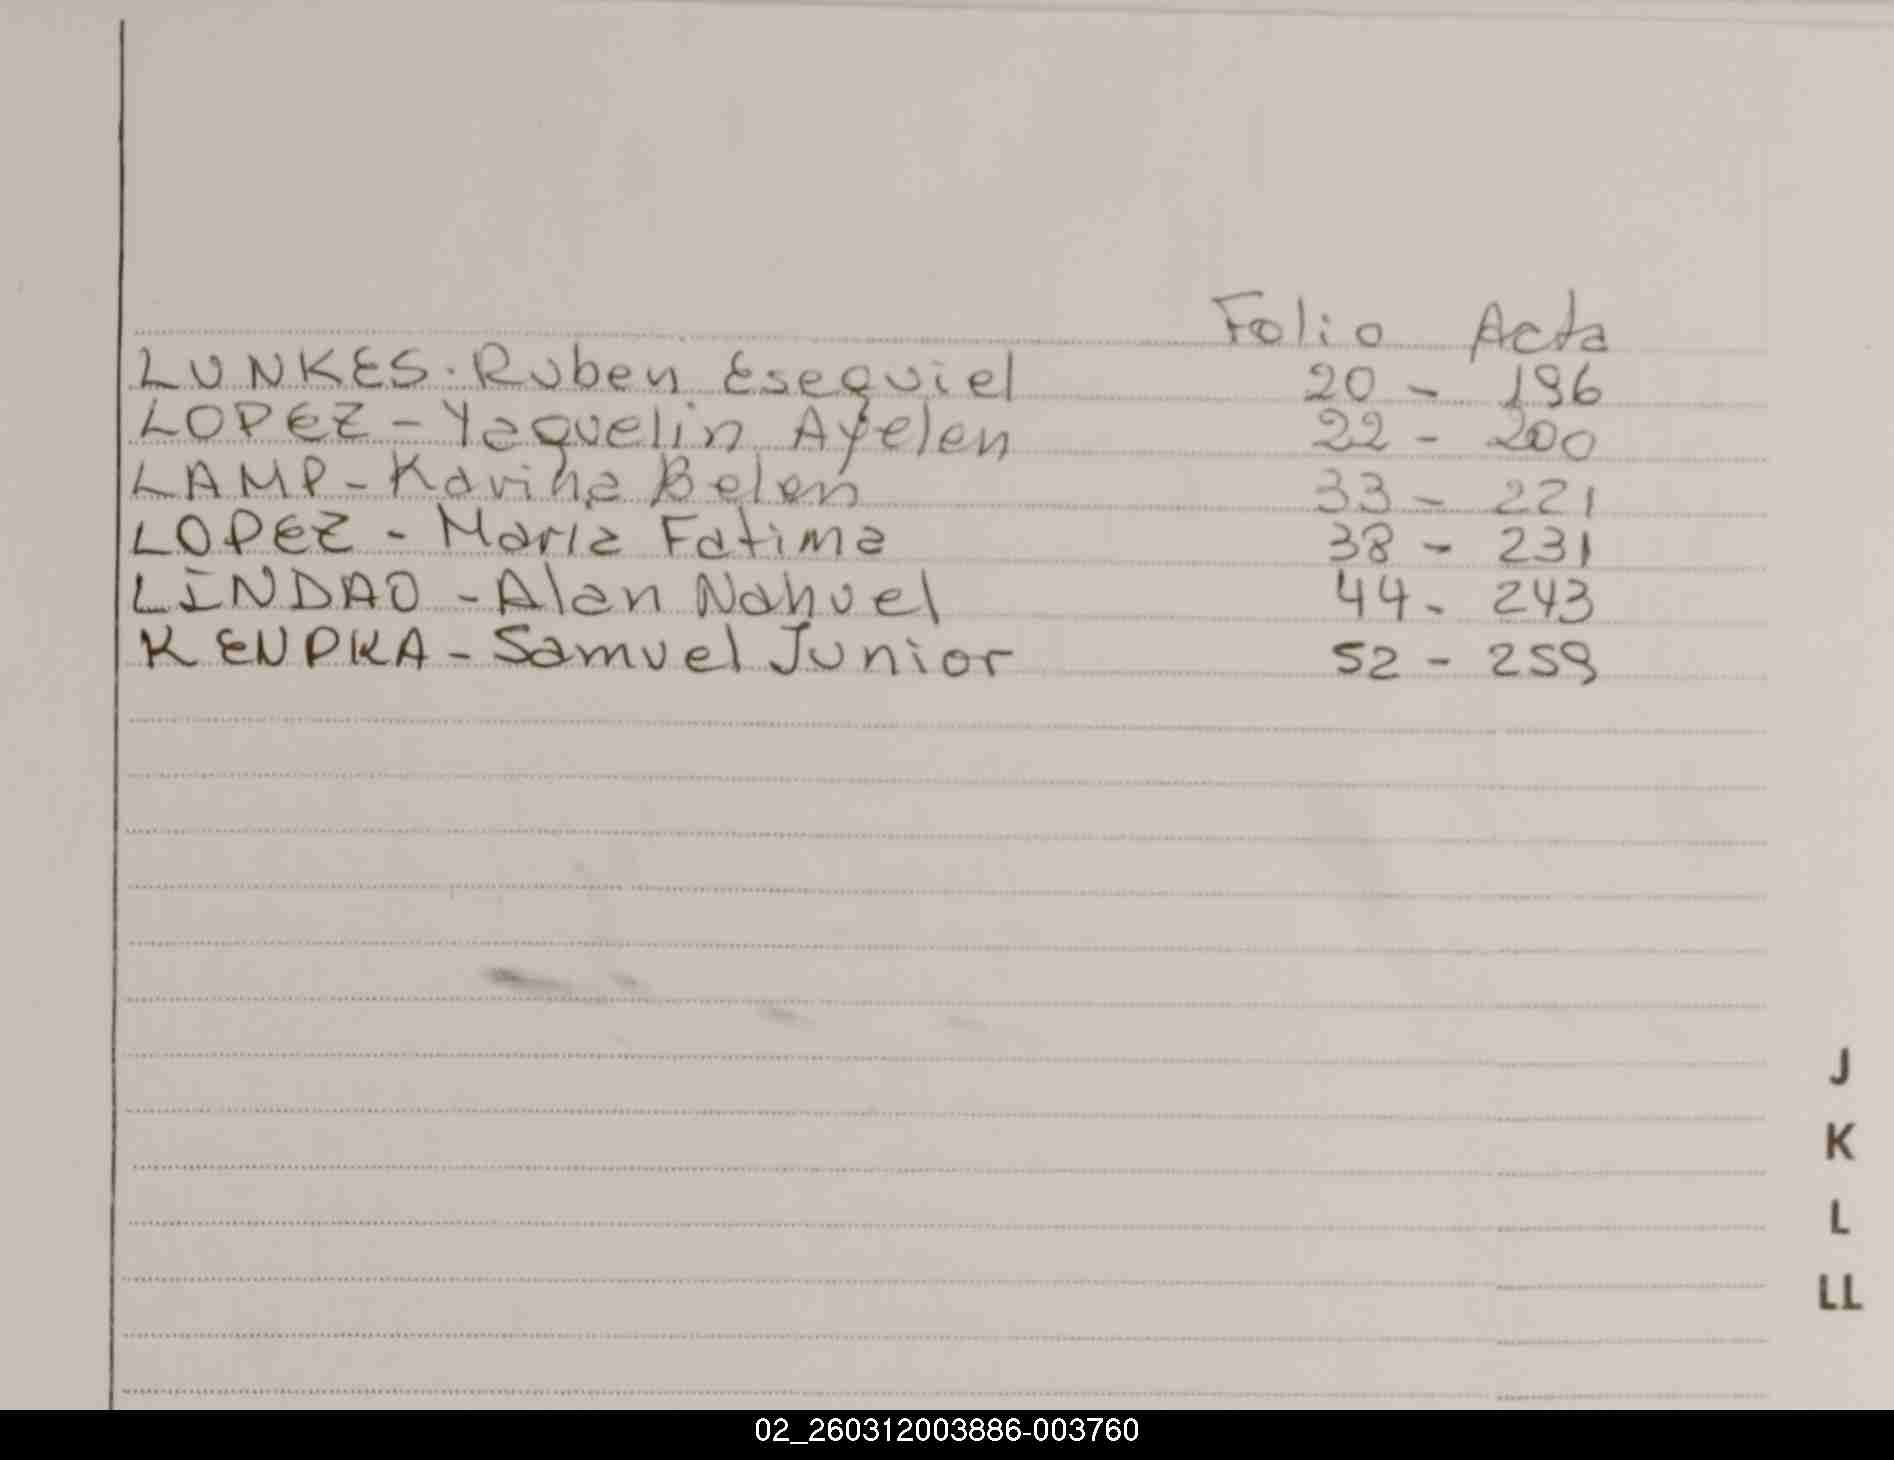 Folio Acta
LUNKES. Ruben Esequiel 20 - 196
LOPEZ - Yaquelin Ayelen 22 - 200
LAMP - Karina Belen 33 - 221
LOPEZ - Maria Fatima 38 - 231
LINDAO - Alan Nahuel 44 - 243
KENPKA - Samuel Junior 52 - 259
J
K
L
LL
02_260312003886-003760